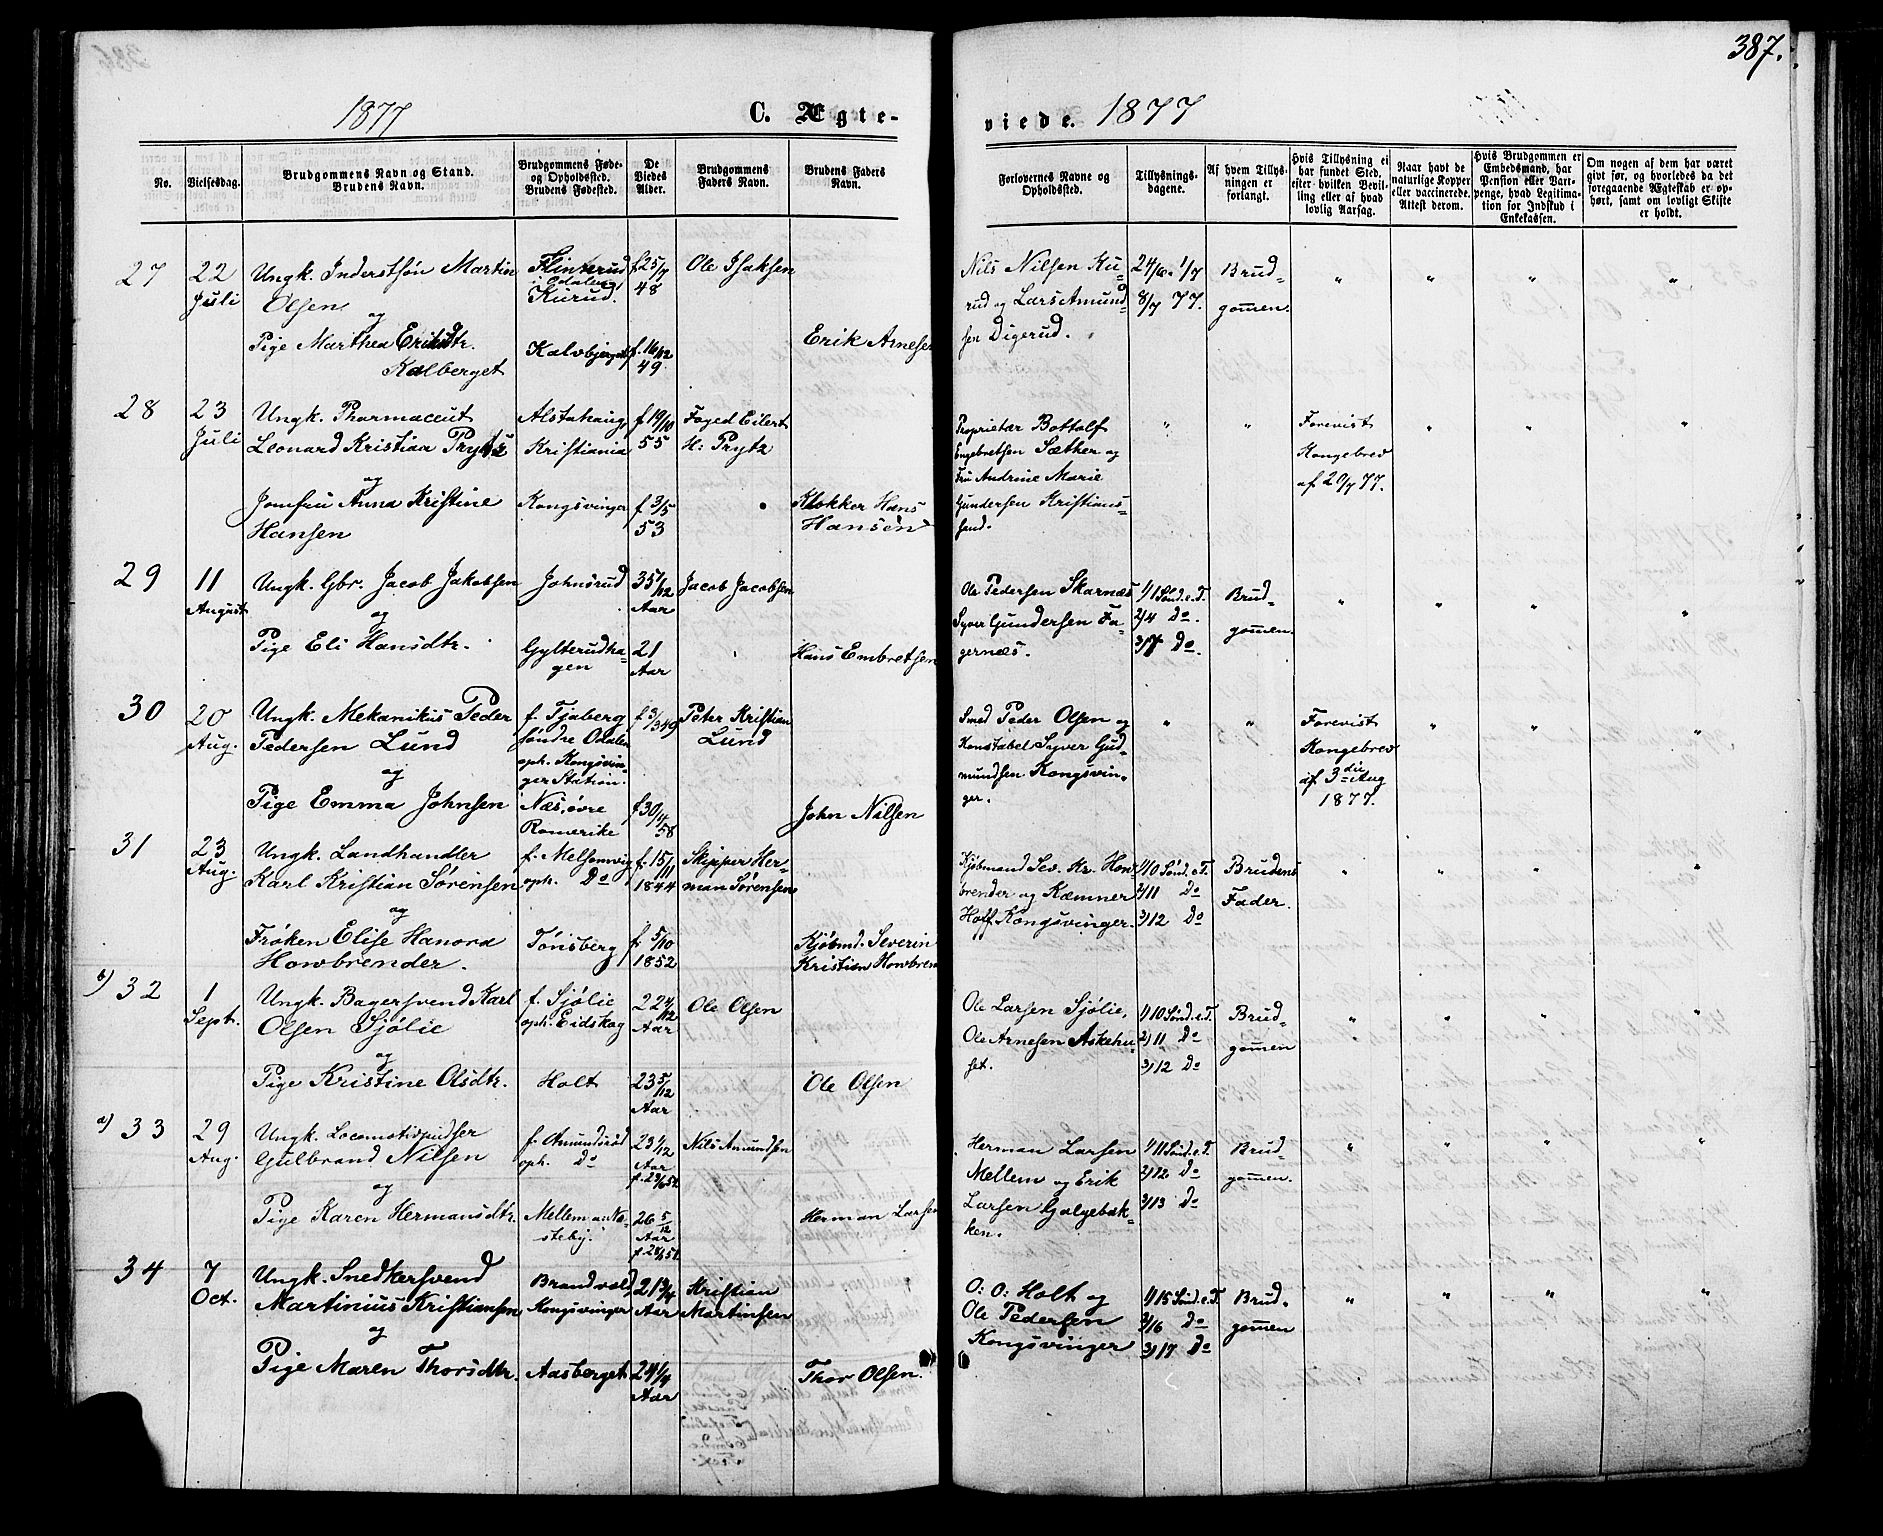 387.
1877
C. Ægte-
viede. 1877
No.
Vielsesdag.
Brudgommens Navn og Stand.
Brudens Navn.
Brudgommens Føde-
og Opholdssted.
Brudens Fødested.
De
Viedes
Alder.
Brudgommens
Faders Navn.
Brudens Faders
Navn.
Forlovernes Navne og
Opholdssted.
Tillysnings-
dagene.
Af hvem Tillys-
ningen er
forlangt.
Hvis Tillysning ei
har fundet Sted,
efter hvilken Bevil-
ling eller af hvad
lovlig Aarsag.
Naar havt de
naturlige Kopper
eller vaccinerede.
Attest derom.
Hvis Brudgommen er
Embedsmand, har
Pension eller Vart-
penge, hvad Legitima-
tion for Indskud i
Enkekassen.
Om nogen af dem har været
givt før, og hvorledes da det
foregaaende Ægteskab er op-
hørt, samt om lovligt Skifte
er holdt.
27
22
Juli
Ungk. Inderstsøn Martin
Olsen
og
Pige Marthea Eriksdtr.
Kalberget
Flinterud
i Odalen
Kurud.
Kalvbjerget
f. 25/7
48
f. 16/12
49.
Ole Isaksen
Erik Arnesen
Nils Nilsen Ku-
rud og Lars Amund
sen Digerud.
24/6 1/7
8/7 77.
Brud-
gommen.
" " " "
28
23
Juli
Ungk. Pharmaceut
Leonard Kristian Prytz
og
Jomfru Anna Kristine
Hansen
Alstahaug
Kristiania
Kongsvinger
f. 19/10
55
f. 3/5
53
Foged Eilert
H: Prytz
Klokker Hans
Hansen
Proprietær Bottolf
Engebretsen Sæther og
Fru Andrine Marie
Gundersen Kristians-
sand.
" "
Forevist
Kongebrev
af 20/7 77.
" " "
29
11
August
Ungk. Gbr. Jacob Jakobsen
og
Pige Eli Hansdtr.
Johnsrud
Gylterudha-
gen
35 1/12
Aar
21
Aar
Jacob Jacobsen
Hans Embretsen
Ole Pedersen Skarnæs
Syver Gundersen Fa-
gernæs.
1/1 Sønd. e. T.
2/4 Do.
3/7 Do.
Brud-
gommen.
" " " "
30
20
Aug.
Ungk. Mekanikus Peder
Pedersen Lund
og
Pige Emma Johnsen
f. Tjaberg
søndre Odalen
oph. Kongsvin-
ger Station.
Næs, øvre
Romerike
f. 3/3 49
f. 30/4
58
Peter Kristian
Lund
John Nilsen
Smed Peder Olsen og
Konstabel Syver Gud-
mundsen Kongsvin-
ger.
" "
Forevist
Kongebrev
af 3die Aug
1877.
" " "
31
23
Aug.
Ungk. Landhandler
Karl Kristian Sørensen
og
Frøken Elise Hanora
Howbrender.
f. Melsomvig
oph. Do
Tønsberg
f. 15/11
1844
f. 5/10
1852
Skipper Her-
man Sørensen
Kjøbmd. Severin
Kristian Howbren
Kjøbmand Sev. Kr. How-
brender og Kæmner
Hoff, Kongsvinger.
1/10 Sønd. e. T.
2/11 Do
3/12 Do
Brudens
Fader.
" " " "
b) 32
1
Sept.
Ungk. Bagersvend Karl
Olsen Sjølie
og
Pige Kristine Olsdtr.
f. Sjølie
oph. Eidskog
Holt
22 4/12
Aar
23 5/12
Aar
Ole Olsen
Ole Olsen
Ole Larsen Sjølie,
Ole Arnesen Askehu-
set.
1/10 Sønd. e. T.
2/11 Do
3/12 Do
Brud-
gommen
" " " "
a) 33
29
Aug.
Ungk. Locomotivpudser
Gulbrand Nilsen
og
Pige Karen Hermansdtr.
f. Amundsrød
oph. Do
Mellem
steby.
23 1/12
Aar
26 5/12
Aar
Nils Amundsen
Herman Larsen
Herman Larsen
Mellem og Erik
Larsen Galgebak-
ken.
1/11 Sønd. e. T.
2/12 Do
3/13 Do
Brud-
gommen.
" " " "
34
7
Oct.
Ungk. Snedkersvend
Martinius Kristiansen
og
Pige Maren Thorsdtr.
Brandval,
Kongsvinger
Aasberget
21 3/4
Aar
24 1/4
Aar
Kristian
Martinsen
Thor Olsen.
O: O: Holt og
Ole Pedersen
Kongsvinger
1/15 Sønd. e. T.
2/16 Do
3/17 Do
Brud-
gommen
" " " "